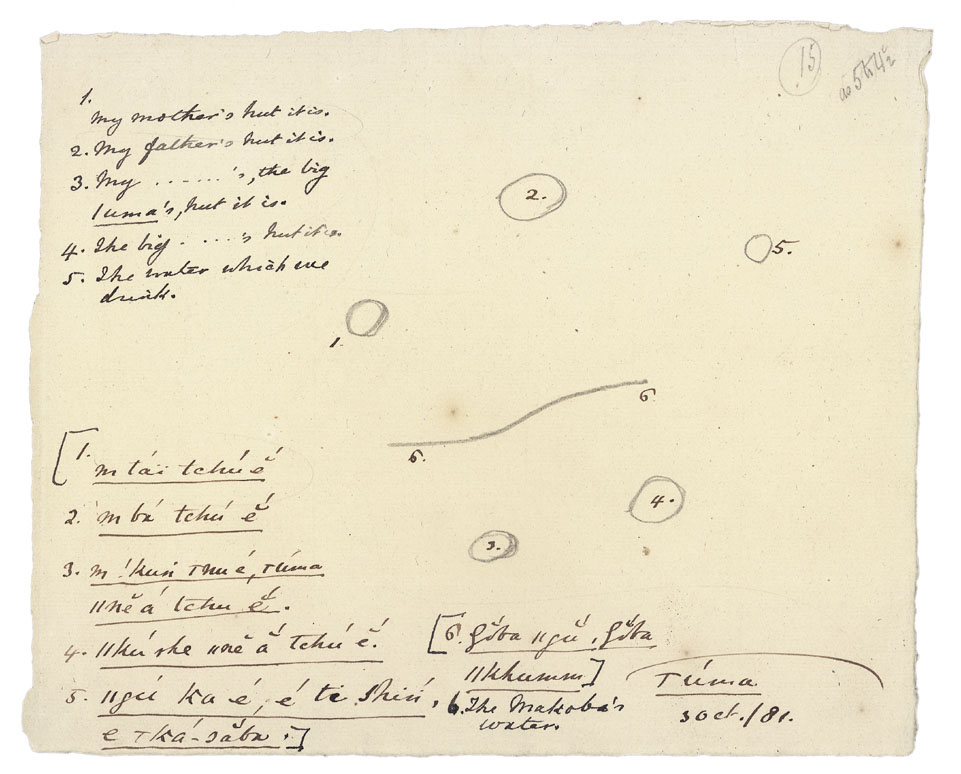 15
1.
My mother's hut it is.
2. My father's hut it is.
3. My ......'s, the big
ǀuma's, hut it is.
4. The big ....'s hut it is.
5. The water which we
drink.
2.
5.
1.
6
6.
4.
3.
[1.
m tái tchú ě́
2. m bá tchú ě́
3. m !kuń
ǁně á tchu ě́.
4. ǁkú she ǁně ǎ́ tchú ě́.
5. ǁgú ka é, é ti Shiń,
[6. Gǒ́ba ǁgǔ, Gǒ́ba
ǁkhumm]
6. The Makoba's
water.
ǀúma
3 Oct./81.